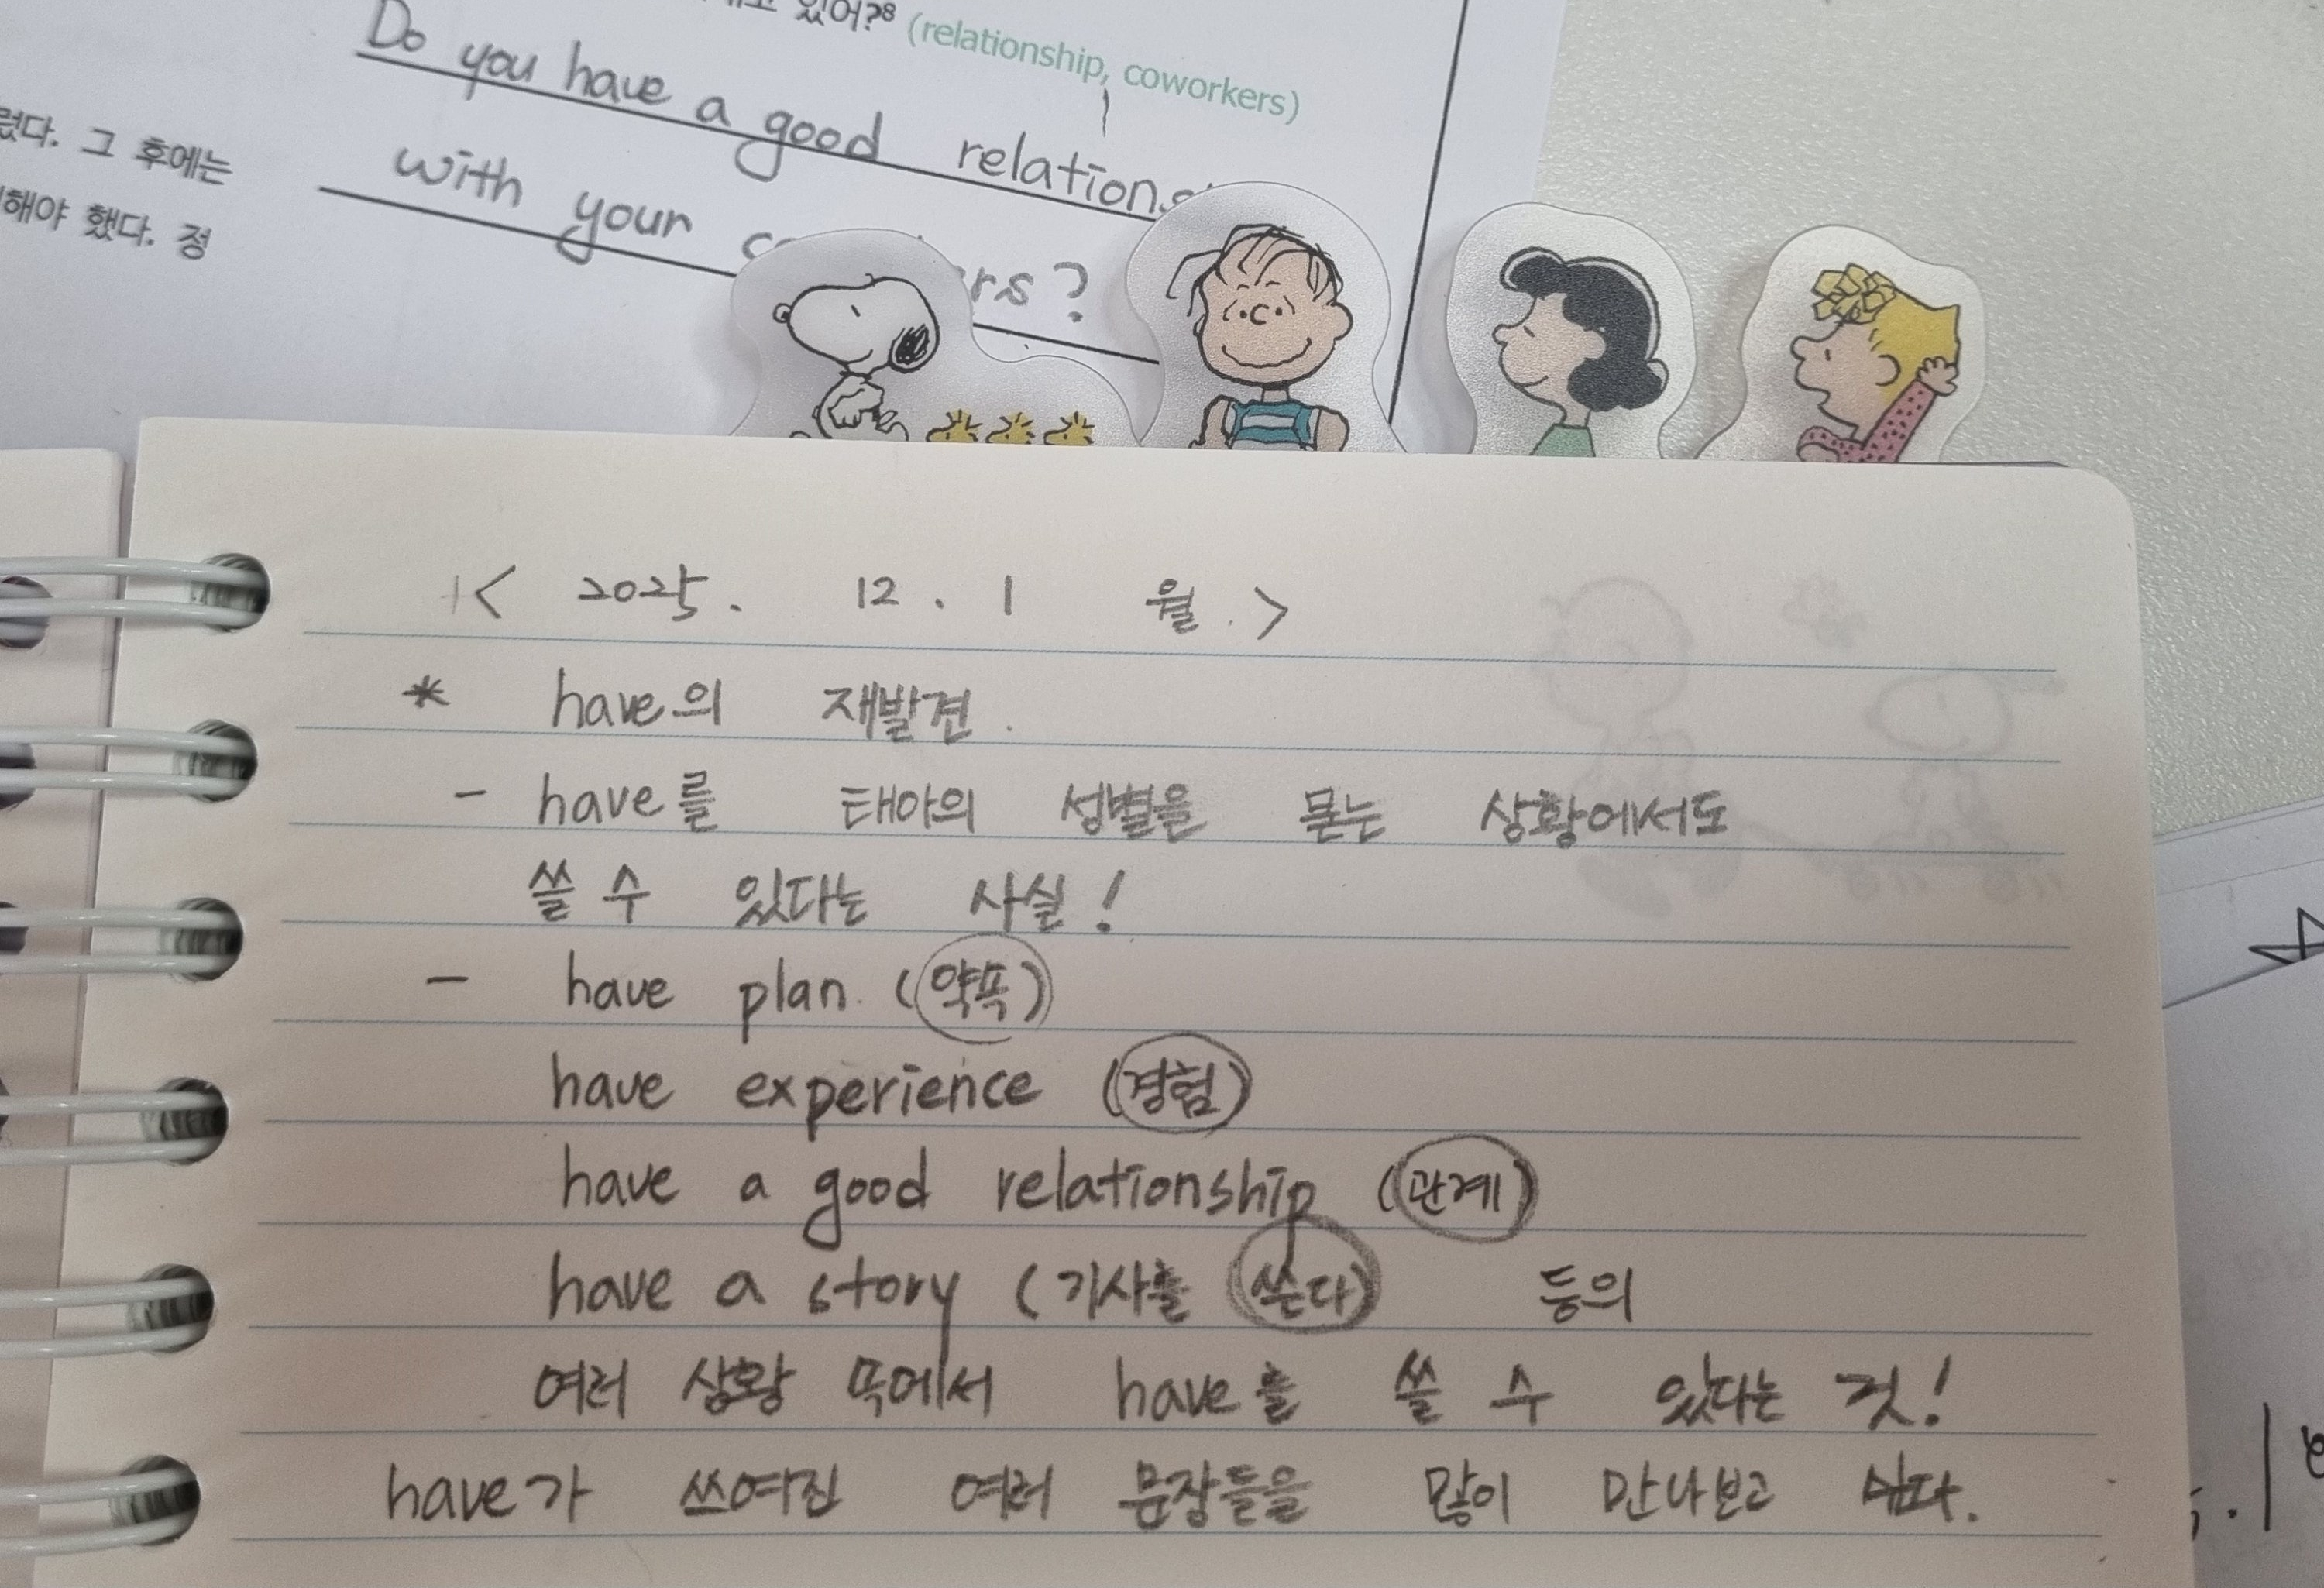 있어?⁸ (relationship, coworkers)
Do you have a good
with your
rs?
그 후에는
해야 했다. 정
< 2025. 12. 1 월.>
* have의 재발견.
- have를 태아의 성별을 묻는 상황에서도
쓸 수 있다는 사실!
- have plan. (약속)
have experience (경험)
have a good relationship (관계)
have a story (기사를 쓴다) 등의
여러 상황 속에서 have를 쓸 수 있다는 것!
have가 쓰여진 여러 문장들을 많이 만나보고 싶다.